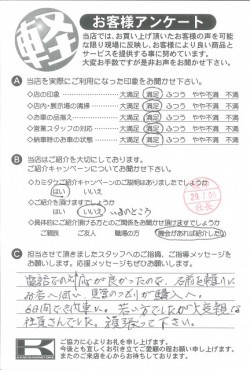 軽
お客様アンケート
当店では、お買い上げ頂いたお客様の声を可能
な限り現場に反映し、お客様により良い商品と
サービスを提供する事に努めています。
大変お手数ですが是非お声をお聞かせ下さい。
A 当店を実際にご利用になった印象をお聞かせ下さい。
◇店の印象 大満足 満足 ふつう やや不満 不満
◇店内・展示場の清掃 大満足 満足 ふつう やや不満 不満
◇お車の品揃え 大満足 満足 ふつう やや不満 不満
◇営業スタッフの対応 大満足 満足 ふつう やや不満 不満
◇納車時のお車の状態 大満足 満足 ふつう やや不満 不満
B 当店はご紹介を大切にしております。
ご紹介キャンペーンについてお聞かせ下さい。
◇カミタケご紹介キャンペーンのご説明はありましたでしょうか
はい いいえ
◇ご紹介を頂けますでしょうか
はい いいえ 今のところ
◇具体的にご紹介頂ける方とのご関係をお聞かせ頂けますでしょうか
ご親戚 ご友人 職場の方 機会があれば紹介したい
C 担当させて頂きましたスタッフへのご指摘、ご指導メッセージを
お願いします。応援メッセージもぜひお願いします。
電話での対応が良かったので、名前を頼りに
お店へ伺い、見学のつもりが購入へ。
6日間で出来た。若い方でしたが大変親切な
社員さんでした。頑張って下さい。
K
ご協力に心よりお礼を申し上げます。
今後とも宜しくお引き立てご愛顧の程お願い申し上げます。
またのご来店を心からお待ちしております。